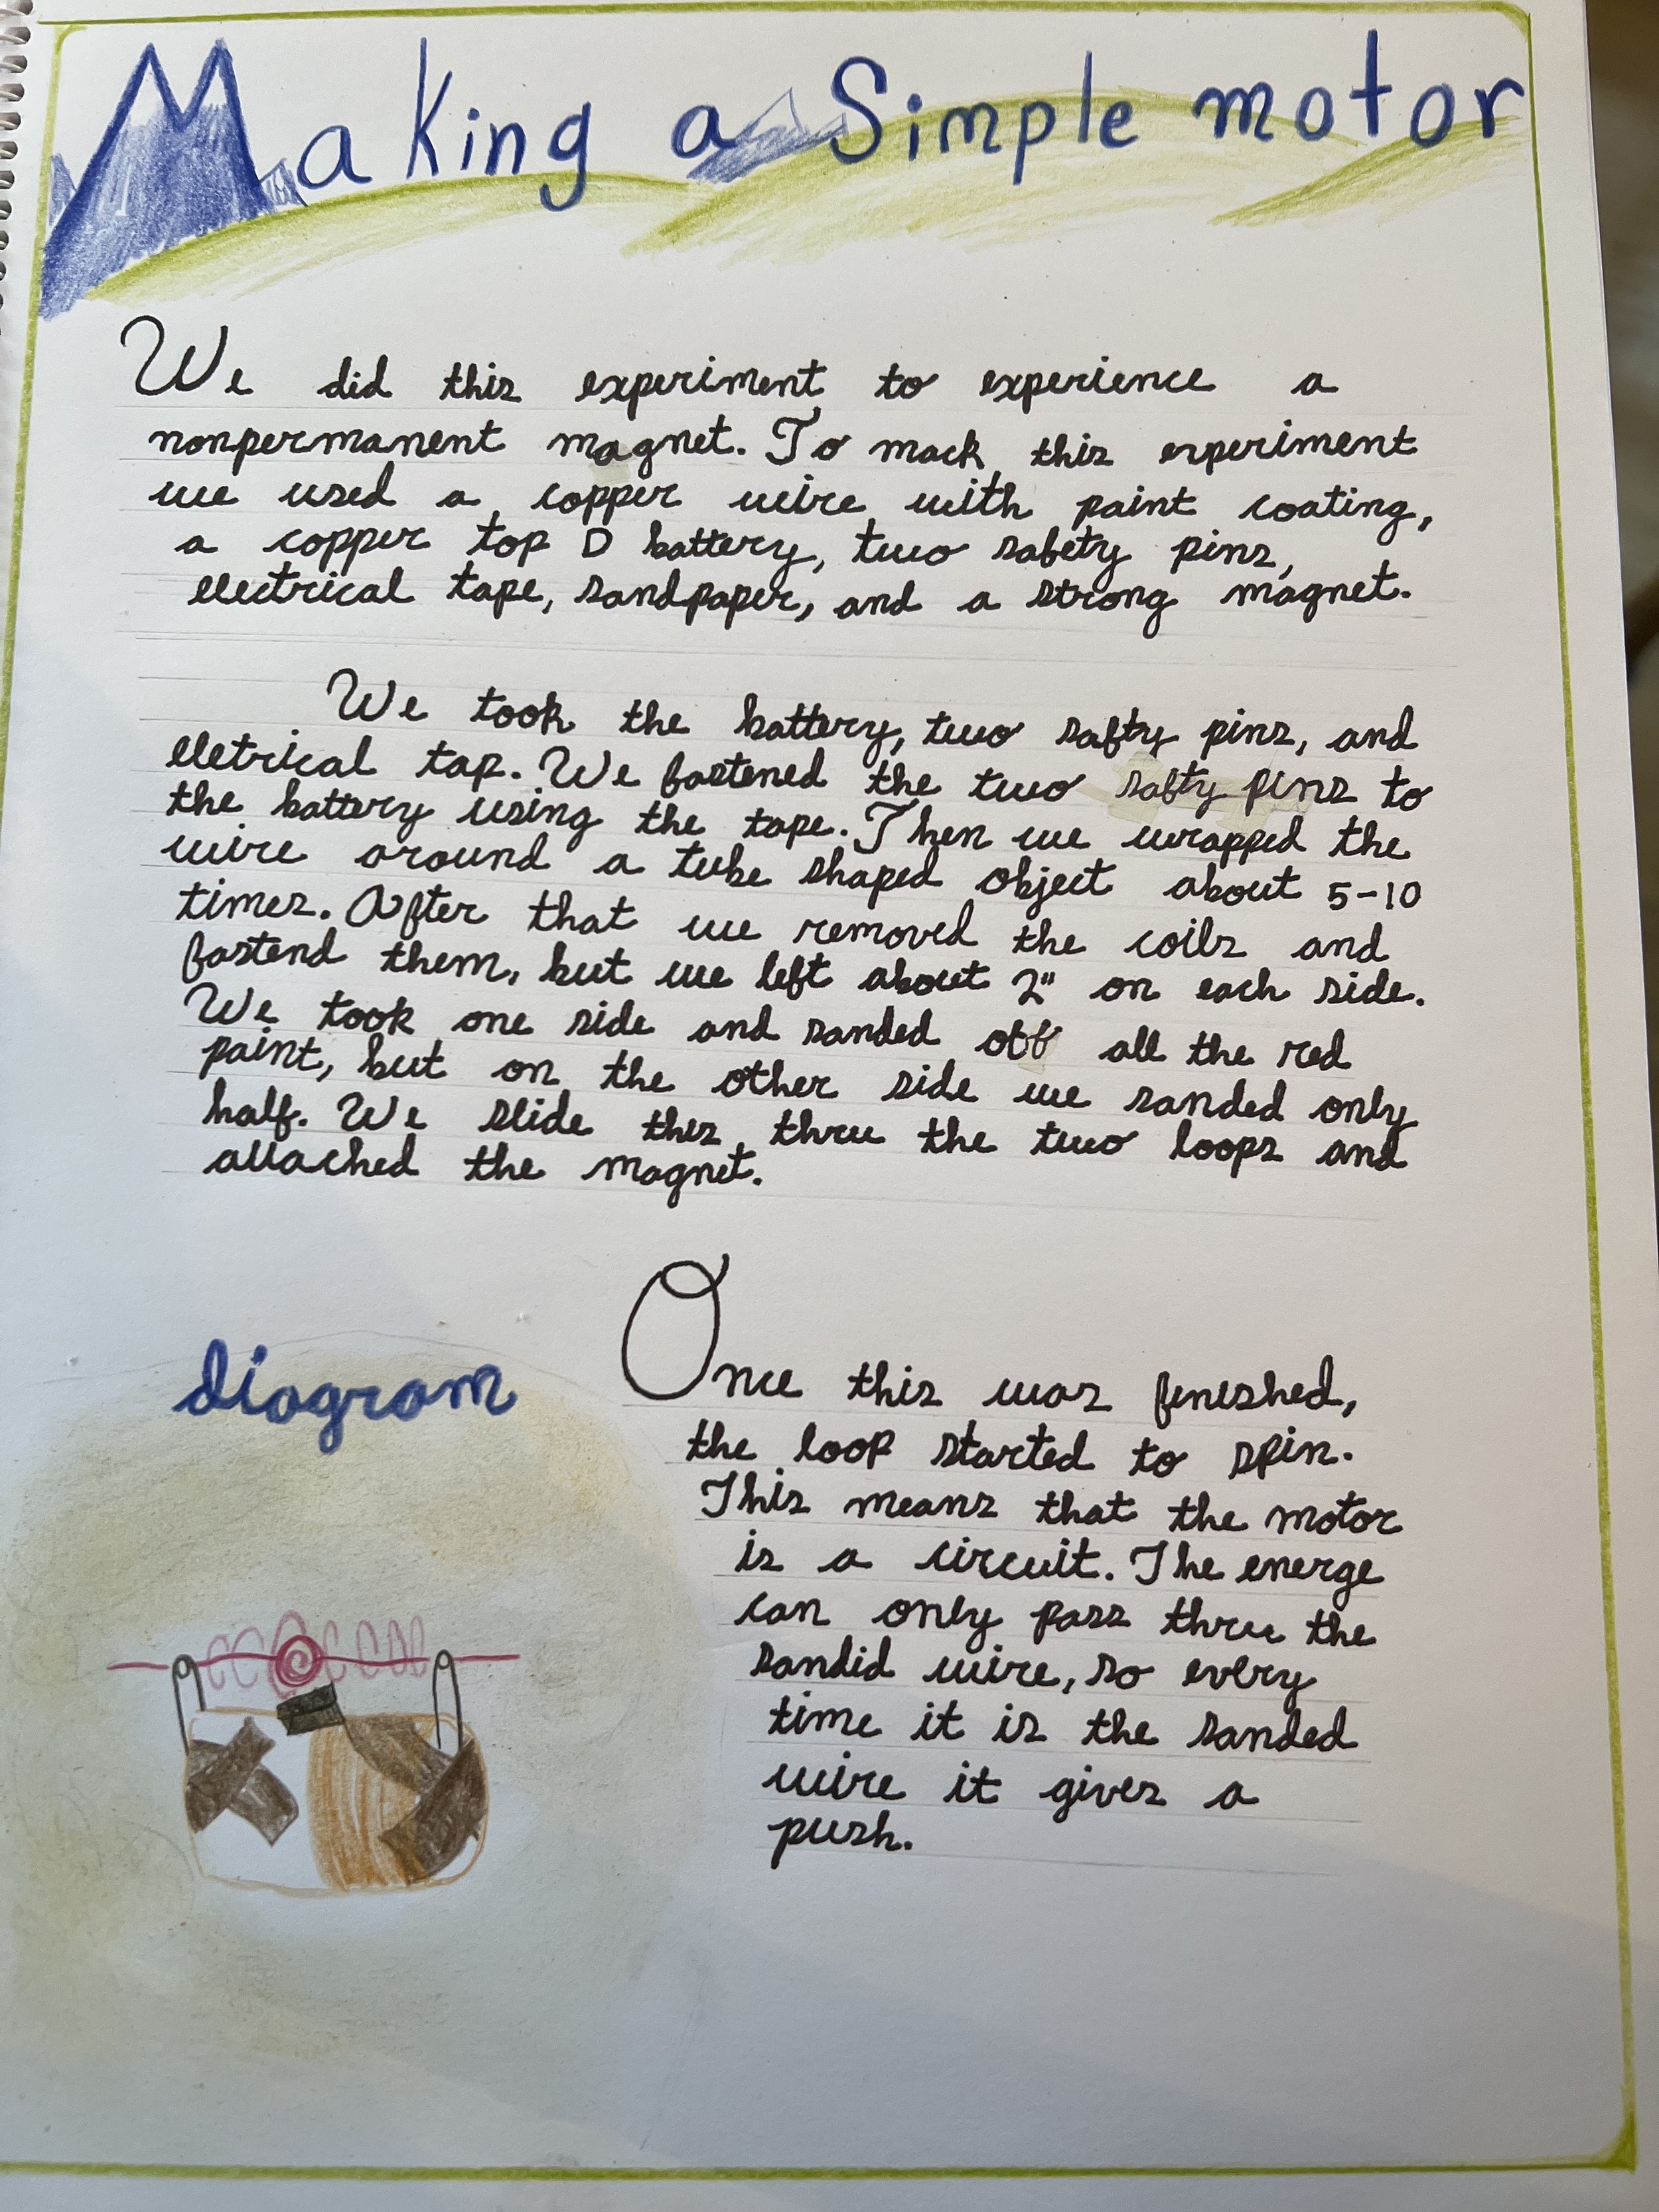 Making a Simple motor
We did this experiment to experience a
nonpermanent magnet. To mack this experiment
we used a copper wire with paint coating,
a copper top D battery, two safety pins,
electrical tape, sandpaper, and a strong magnet.
We took the battery, two safty pins, and
eletrical tap. We fastened the two safty pins to
the battery using the tape. Then we wrapped the
wire around a tube shaped object about 5-10
times. After that we removed the coils and
fastend them, but we left about 2" on each side.
We took one side and sanded off all the red
paint, but on the other side we sanded only
half. We slide this thru the two loops and
attached the magnet.
diagram
Once this was finished,
the loop started to spin.
This means that the motor
is a circuit. The energe
can only pass thru the
sandid wire, so every
time it is the sanded
wire it gives a
push.